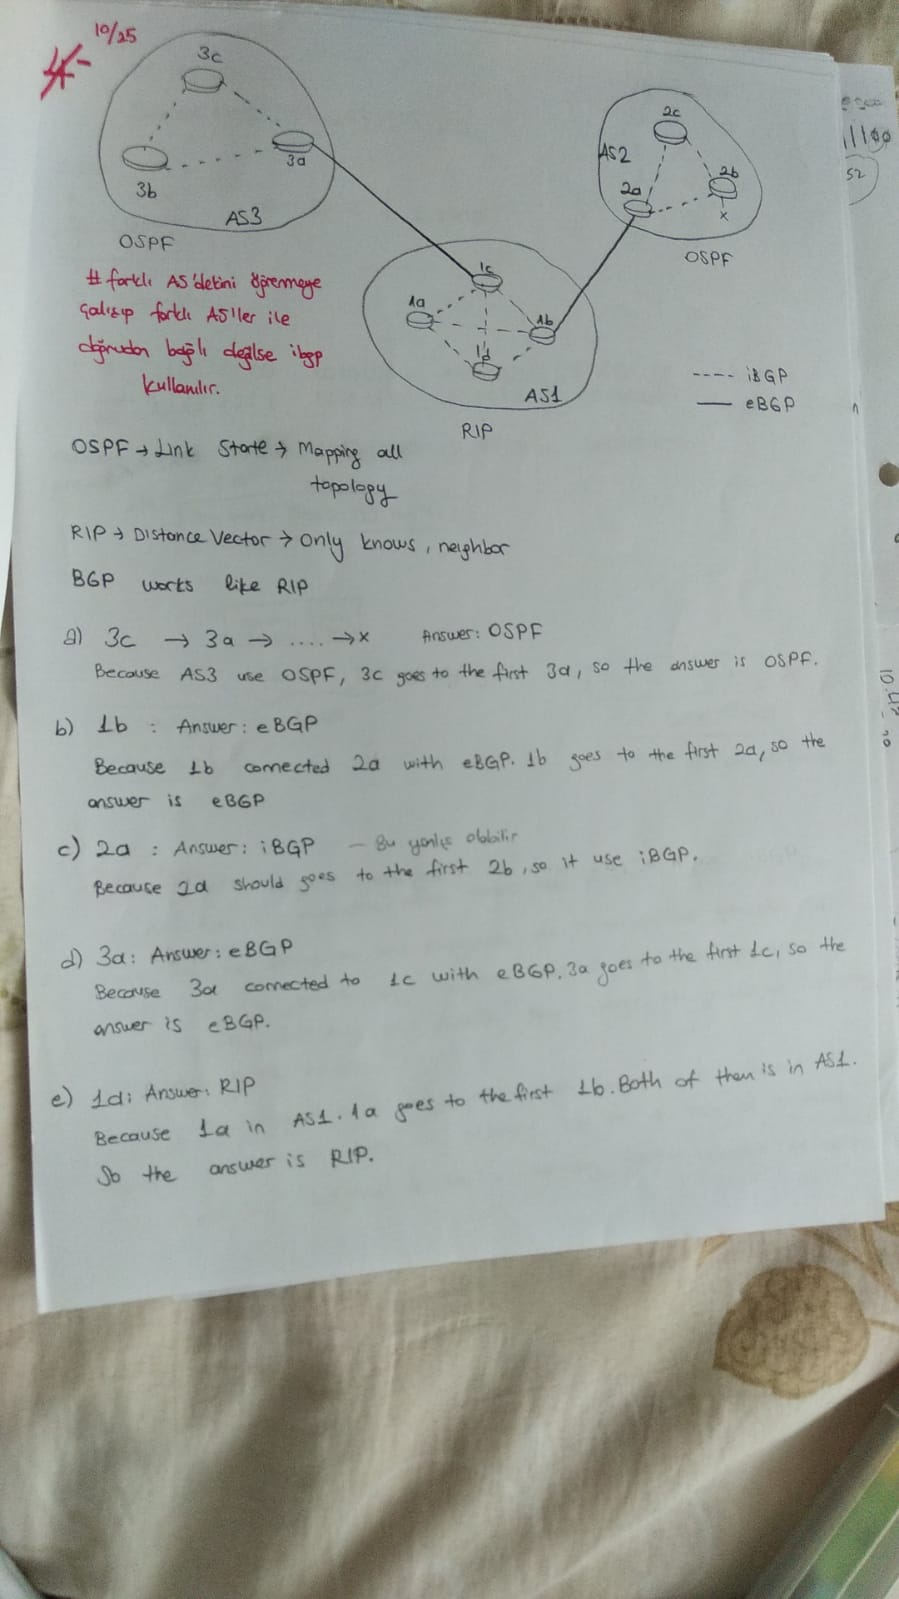 10/25
3c
3a
3b
AS3
OSPF
2c
AS2
2b
2a
x
OSPF
1c
1a
1b
1d
AS1
RIP
---- iBGP
— eBGP
# farklı AS'dekini öğrenmeye
çalışıp farklı AS'ler ile
doğrudan bağlı değilse ibgp
kullanılır.
OSPF → Link State → Mapping all
topology
RIP → Distance Vector → Only knows, neighbor
BGP works like RIP
a) 3c → 3a → .... → x Answer: OSPF
Because AS3 use OSPF, 3c goes to the first 3a, so the answer is OSPF.
b) 1b : Answer: eBGP
Because 1b connected 2a with eBGP. 1b goes to the first 2a, so the
answer is eBGP
c) 2a : Answer: iBGP — Bu yanlış olabilir
Because 2a should goes to the first 2b, so it use iBGP.
d) 3a: Answer: eBGP
Because 3a connected to 1c with eBGP. 3a goes to the first 1c, so the
answer is eBGP.
e) 1d: Answer: RIP
Because 1a in AS1. 1a goes to the first 1b. Both of them is in AS1.
So the answer is RIP.
52